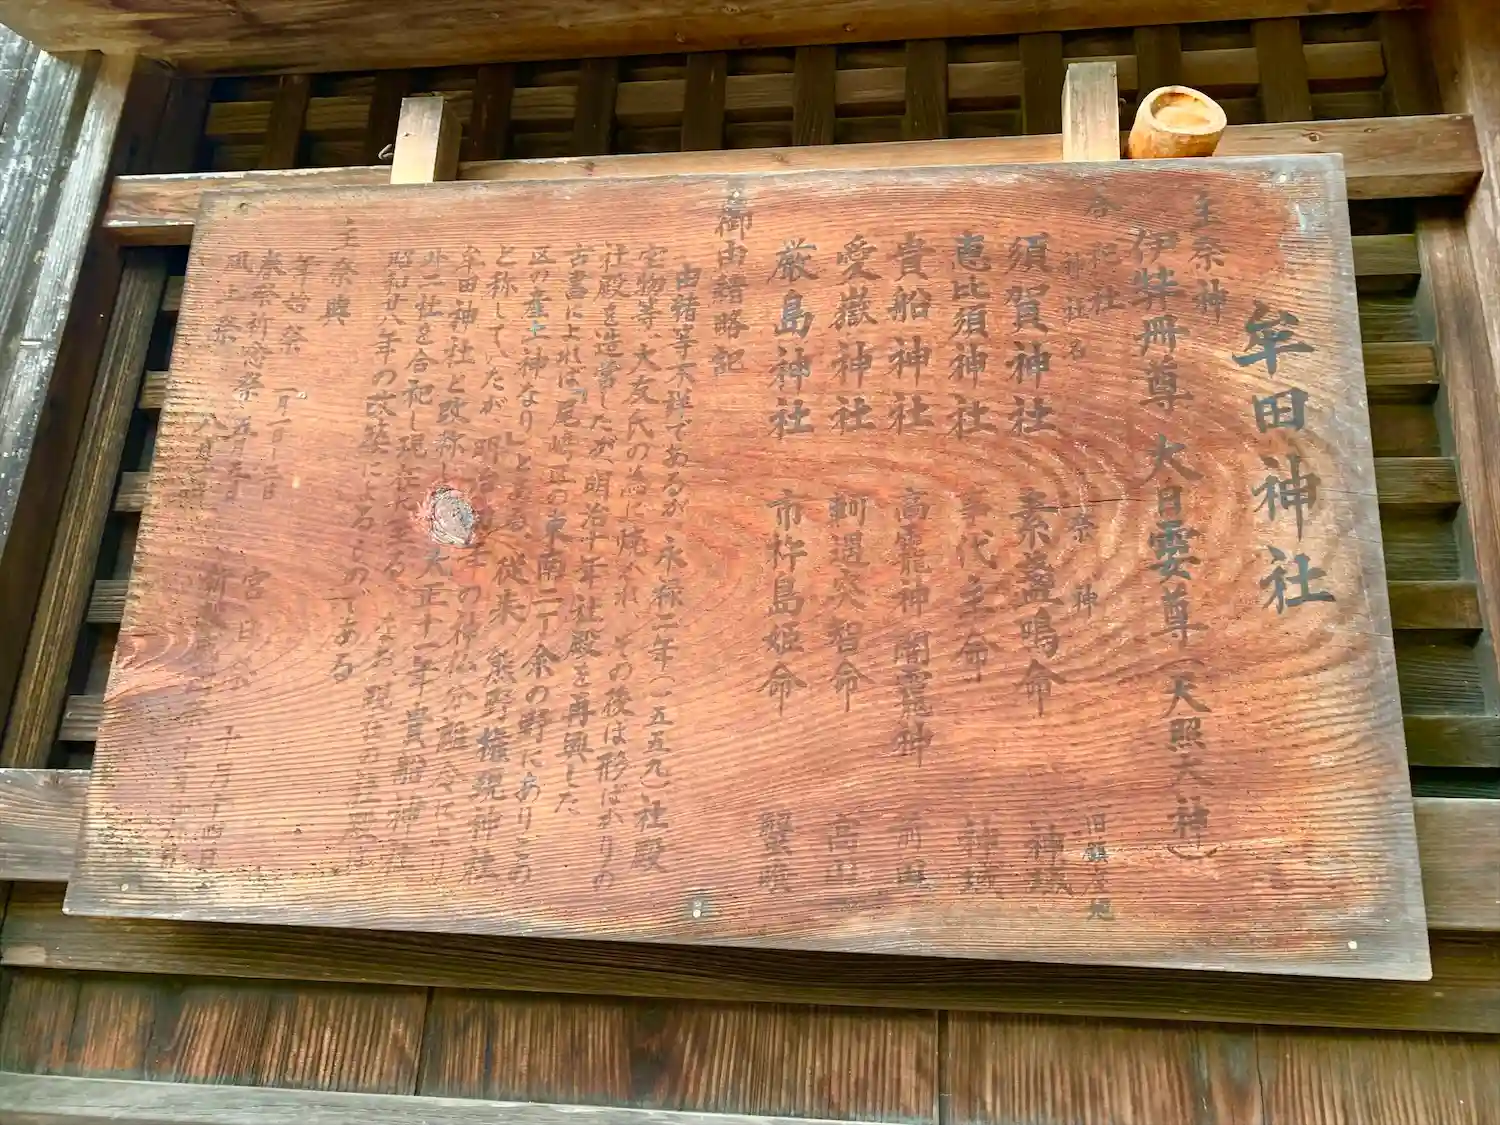 牟田神社
主祭神
伊弉冊尊 大日孁尊(天照大神)
合祀社
神社名 祭神 旧鎮座地
須賀神社 素盞鳴命 神域
恵比須神社 事代主命 神域
貴船神社 高龗神闇龗神 前田
愛嶽神社 軻遇突智命 高山
厳島神社 市杵島姫命
御由緒略記
由緒等不詳であるが 永禄二年(一五五九)社殿
宝物等、大友氏の為に焼かれ その後は形ばかりの
社殿を造営したが、明治十年社殿を再興した
古書によれば「尾崎区の東南二丁余の野にありこの
区の産土神なり」とある。従来、熊野権現神社
と称していたが、明治 年の神仏分離令により
牟田神社と改称し 大正十一年貴船神社
外二社を合祀し現在に至る なお、現在の社殿は
昭和廿八年の改築によるものである
主祭典
年始祭 一月一日・二日 宮日
春祭祈念祭 五月 日 十月十四日
風止祭 八月